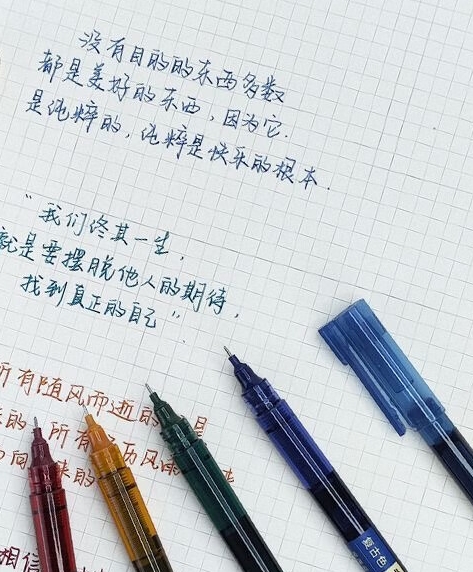 没有目的的东西多数
都是美好的东西，因为它
是纯粹的，纯粹是快乐的根本．
“我们终其一生，
就是要摆脱他人的期待，
找到真正的自己”
所有随风而逝的 是
的 所有 历风雨
向 的
相信
复古色